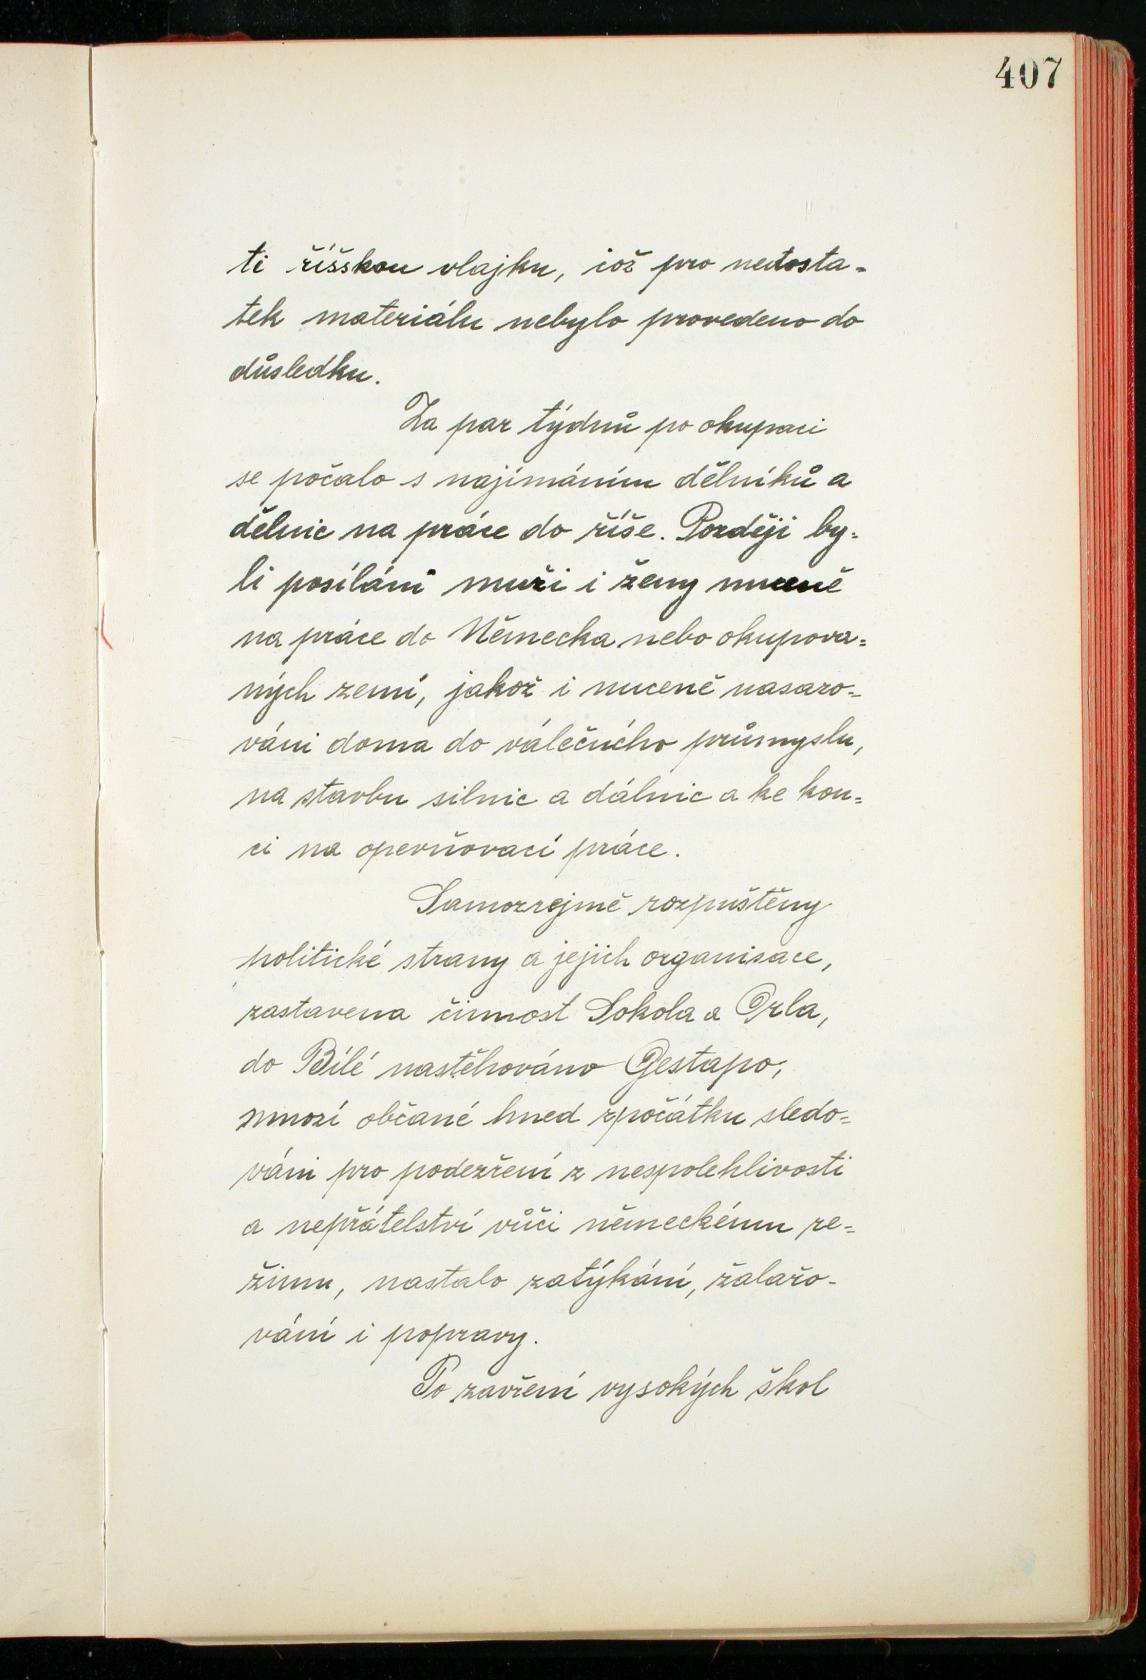 407
ti říšskou vlajku, což pro nedosta-
tek materiálu nebylo provedeno do
důsledku.
Za par týdnů po okupaci
se počalo s najímáním dělníků a
dělnic na práce do říše. Později by-
li posíláni muži i ženy nuceně
na práce do Německa nebo okupova-
ných zemí, jakož i nuceně nasazo-
váni doma do válečného průmyslu,
na stavbu silnic a dálnic a ke kon-
ci na opevňovací práce.
Samozrejmě rozpuštěny
politické strany a jejich organisace,
zastavena činnost Sokola a Orla,
do Bílé nastěhováno Gestapo,
mnozí občané hned zpočátku sledo-
váni pro podezření z nespolehlivosti
a nepřátelství vůči německému re-
žimu, nastalo zatýkání, žalařo-
vání i popravy.
Po zavření vysokých škol